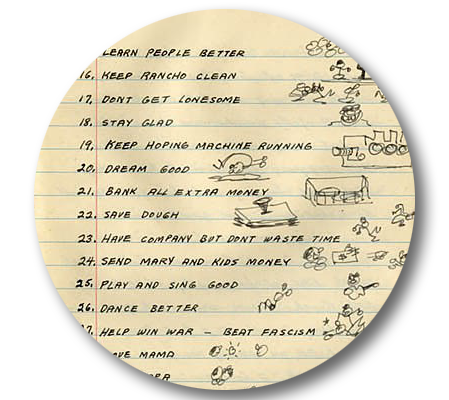 LEARN PEOPLE BETTER
16. KEEP RANCHO CLEAN
17. DONT GET LONESOME
18. STAY GLAD
19. KEEP HOPING MACHINE RUNNING
20. DREAM GOOD
21. BANK ALL EXTRA MONEY
22. SAVE DOUGH
23. HAVE COMPANY BUT DONT WASTE TIME
24. SEND MARY AND KIDS MONEY
25. PLAY AND SING GOOD
26. DANCE BETTER
27. HELP WIN WAR — BEAT FASCISM
OVE MAMA